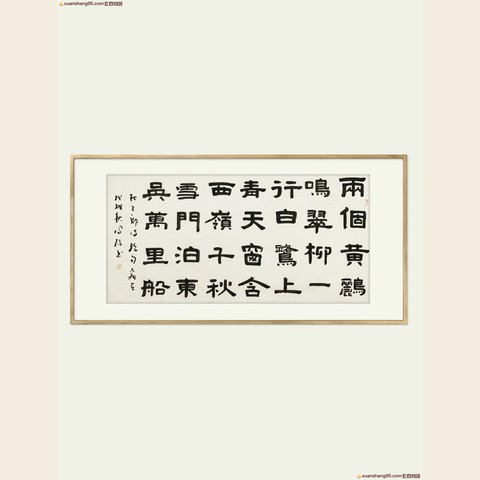 xuanshang95.com
兩個黄鸝
鳴翠柳一
行白鷺上
青天窗含
西嶺千秋
雪門泊東
吳萬里船
xuanshang95.com